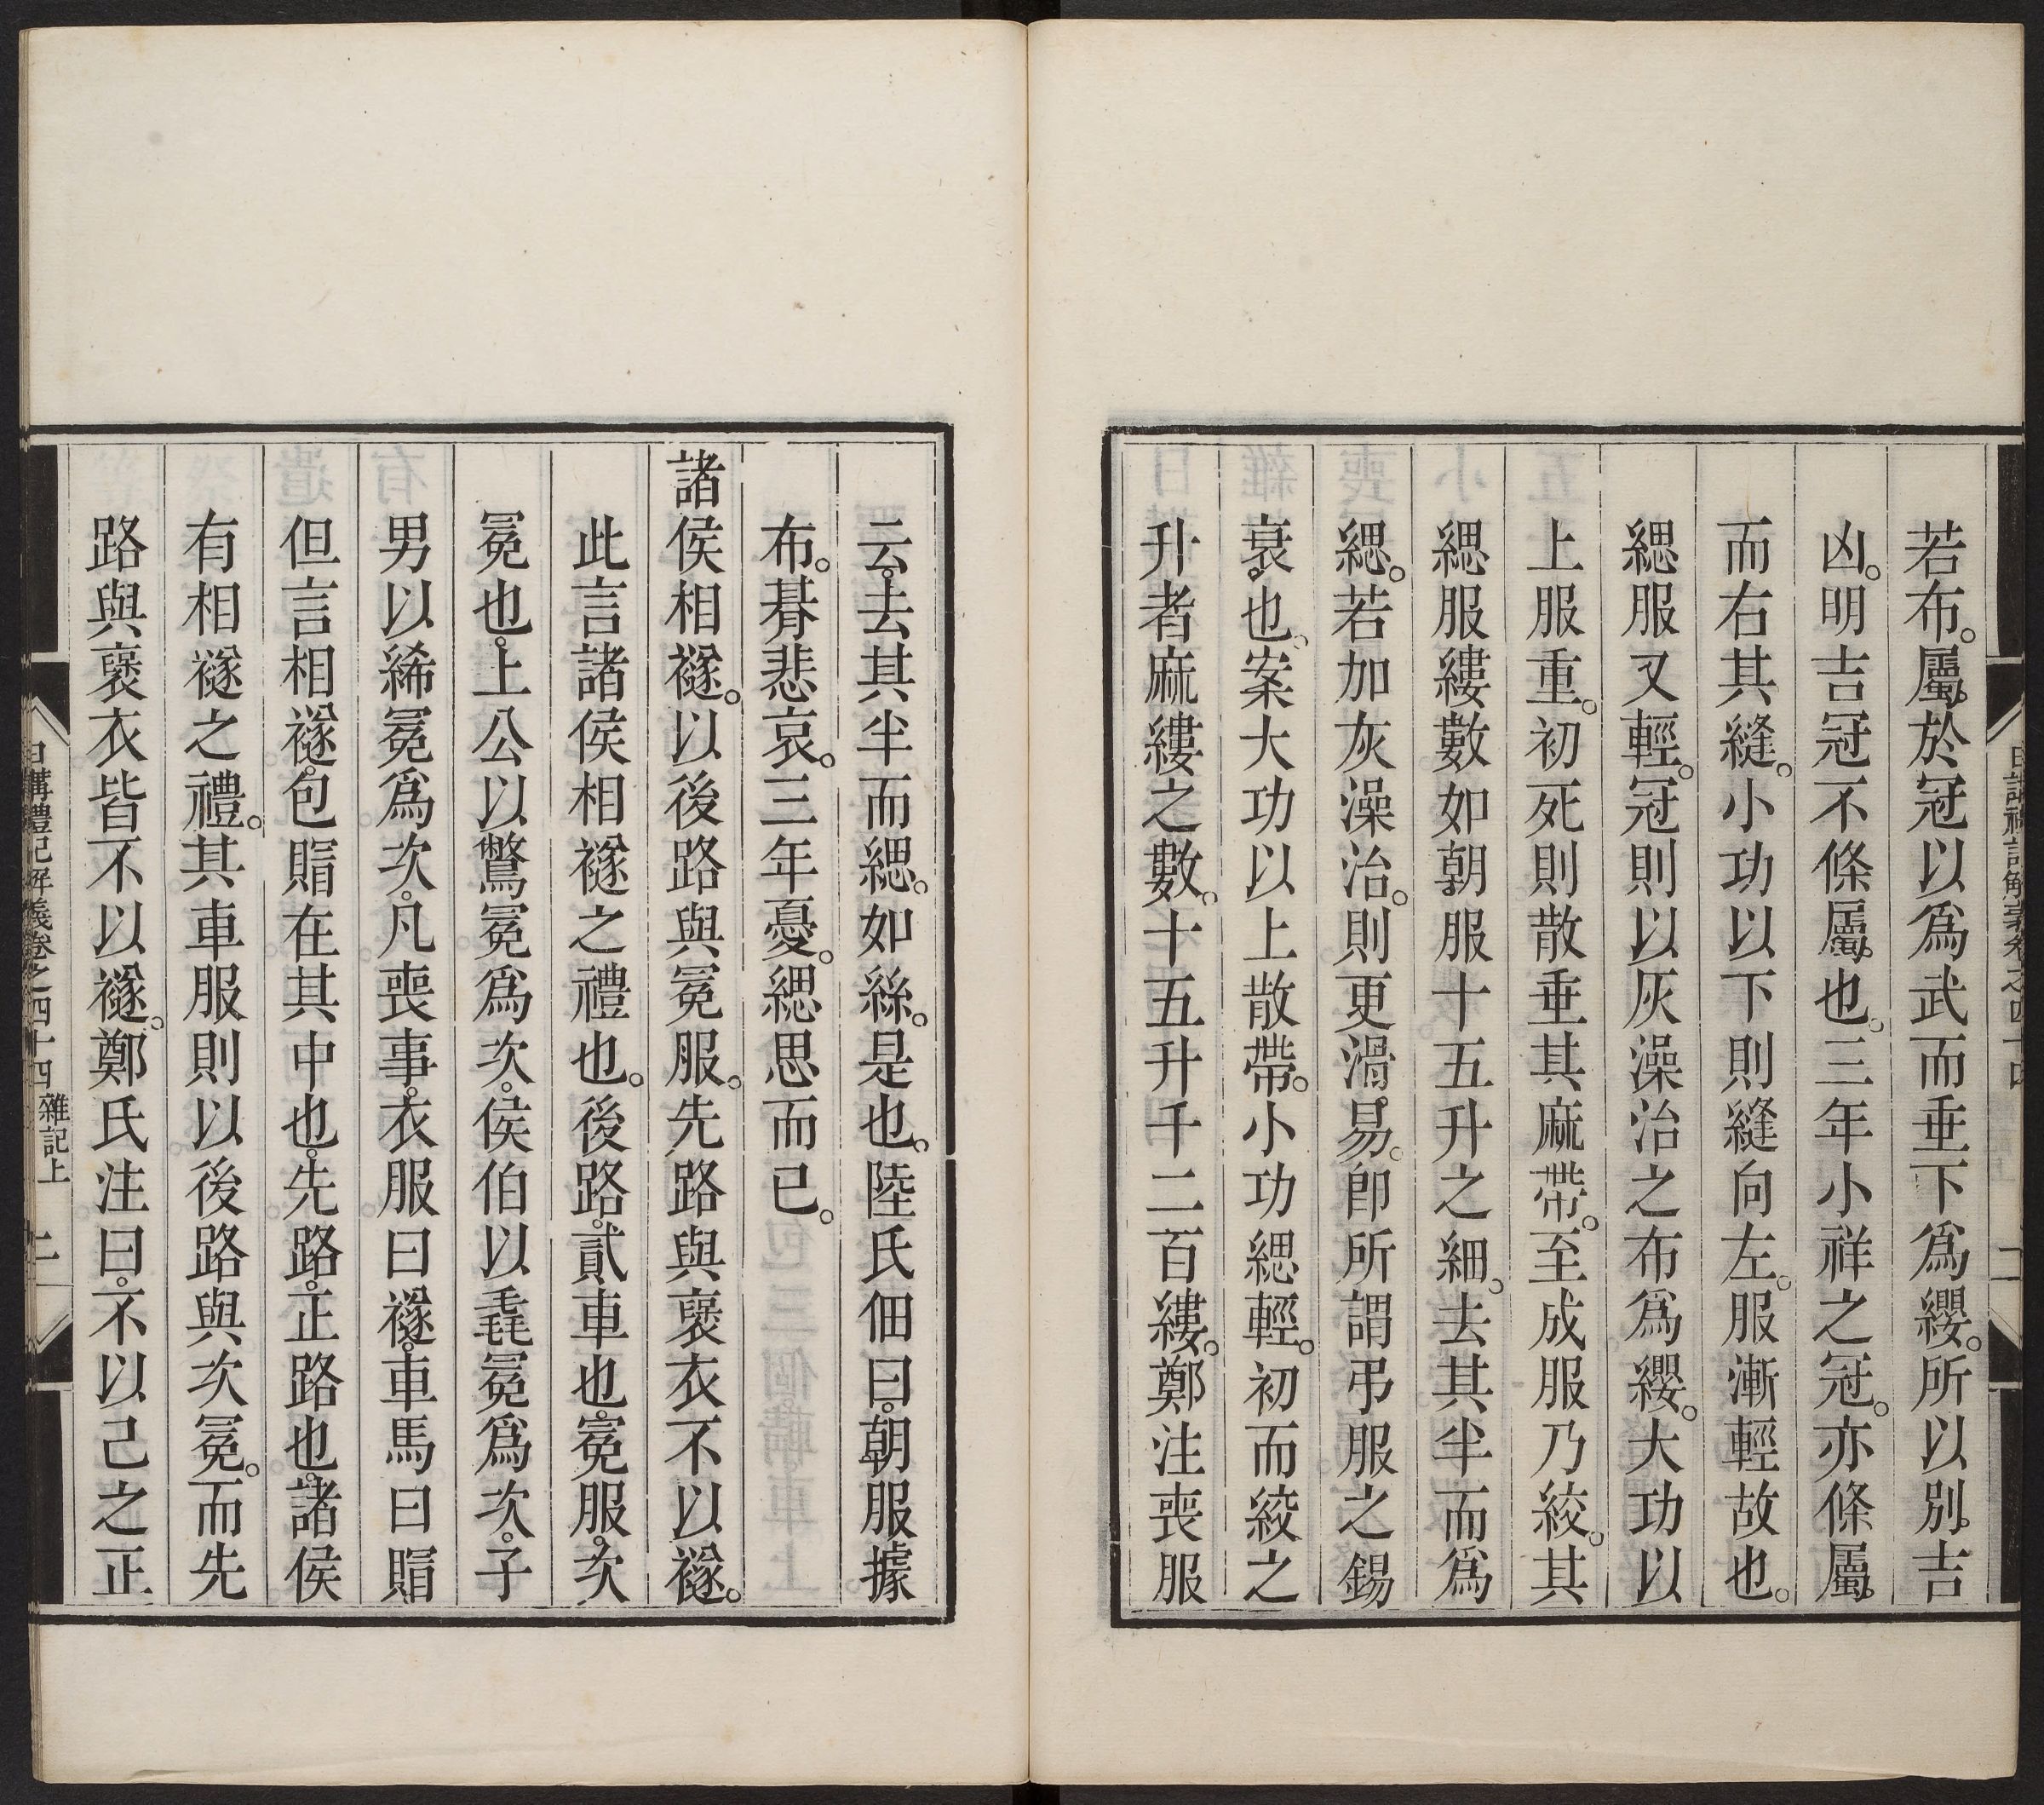 若布。屬。於冠以爲武而垂下爲纓。所以別。吉
凶。明吉冠不條屬。也。三年小祥之冠。亦條屬。
而右其縫。小功以下則縫向左。服漸輕故也。
緦服又輕。冠則以灰澡治之布爲纓。大功以
上服重。初死則散垂其麻帶。至成服乃絞。其
緦服縷數如朝服十五升之細。去其半而爲
緦。若加灰澡治。則更滑易。卽所謂弔服之錫
衰。也。案大功以上散帶。小功緦輕。初而絞之
升者麻縷之數。十五升千二百縷。鄭注喪服
云。去其半而緦。如絲。是也。陸氏佃曰。朝服據
布。朞悲哀。三年憂。緦思而已。
諸侯相襚。以後路與冕服。先路與褒衣不以襚。
此言諸侯相襚之禮也。後路。貳車也。冕服。次
冕也。上公以鷩冕爲次。侯伯以毳冕爲次。子
男以絺冕爲次。凡喪事。衣服曰襚。車馬曰賵
但言相襚。包賵在其中也。先路。正路也。諸侯
有相襚之禮。其車服則以後路與次冕。而先
路與褒衣皆不以襚。鄭氏注曰。不以己之正
日講禮記解義卷之四十四 雜記上 二